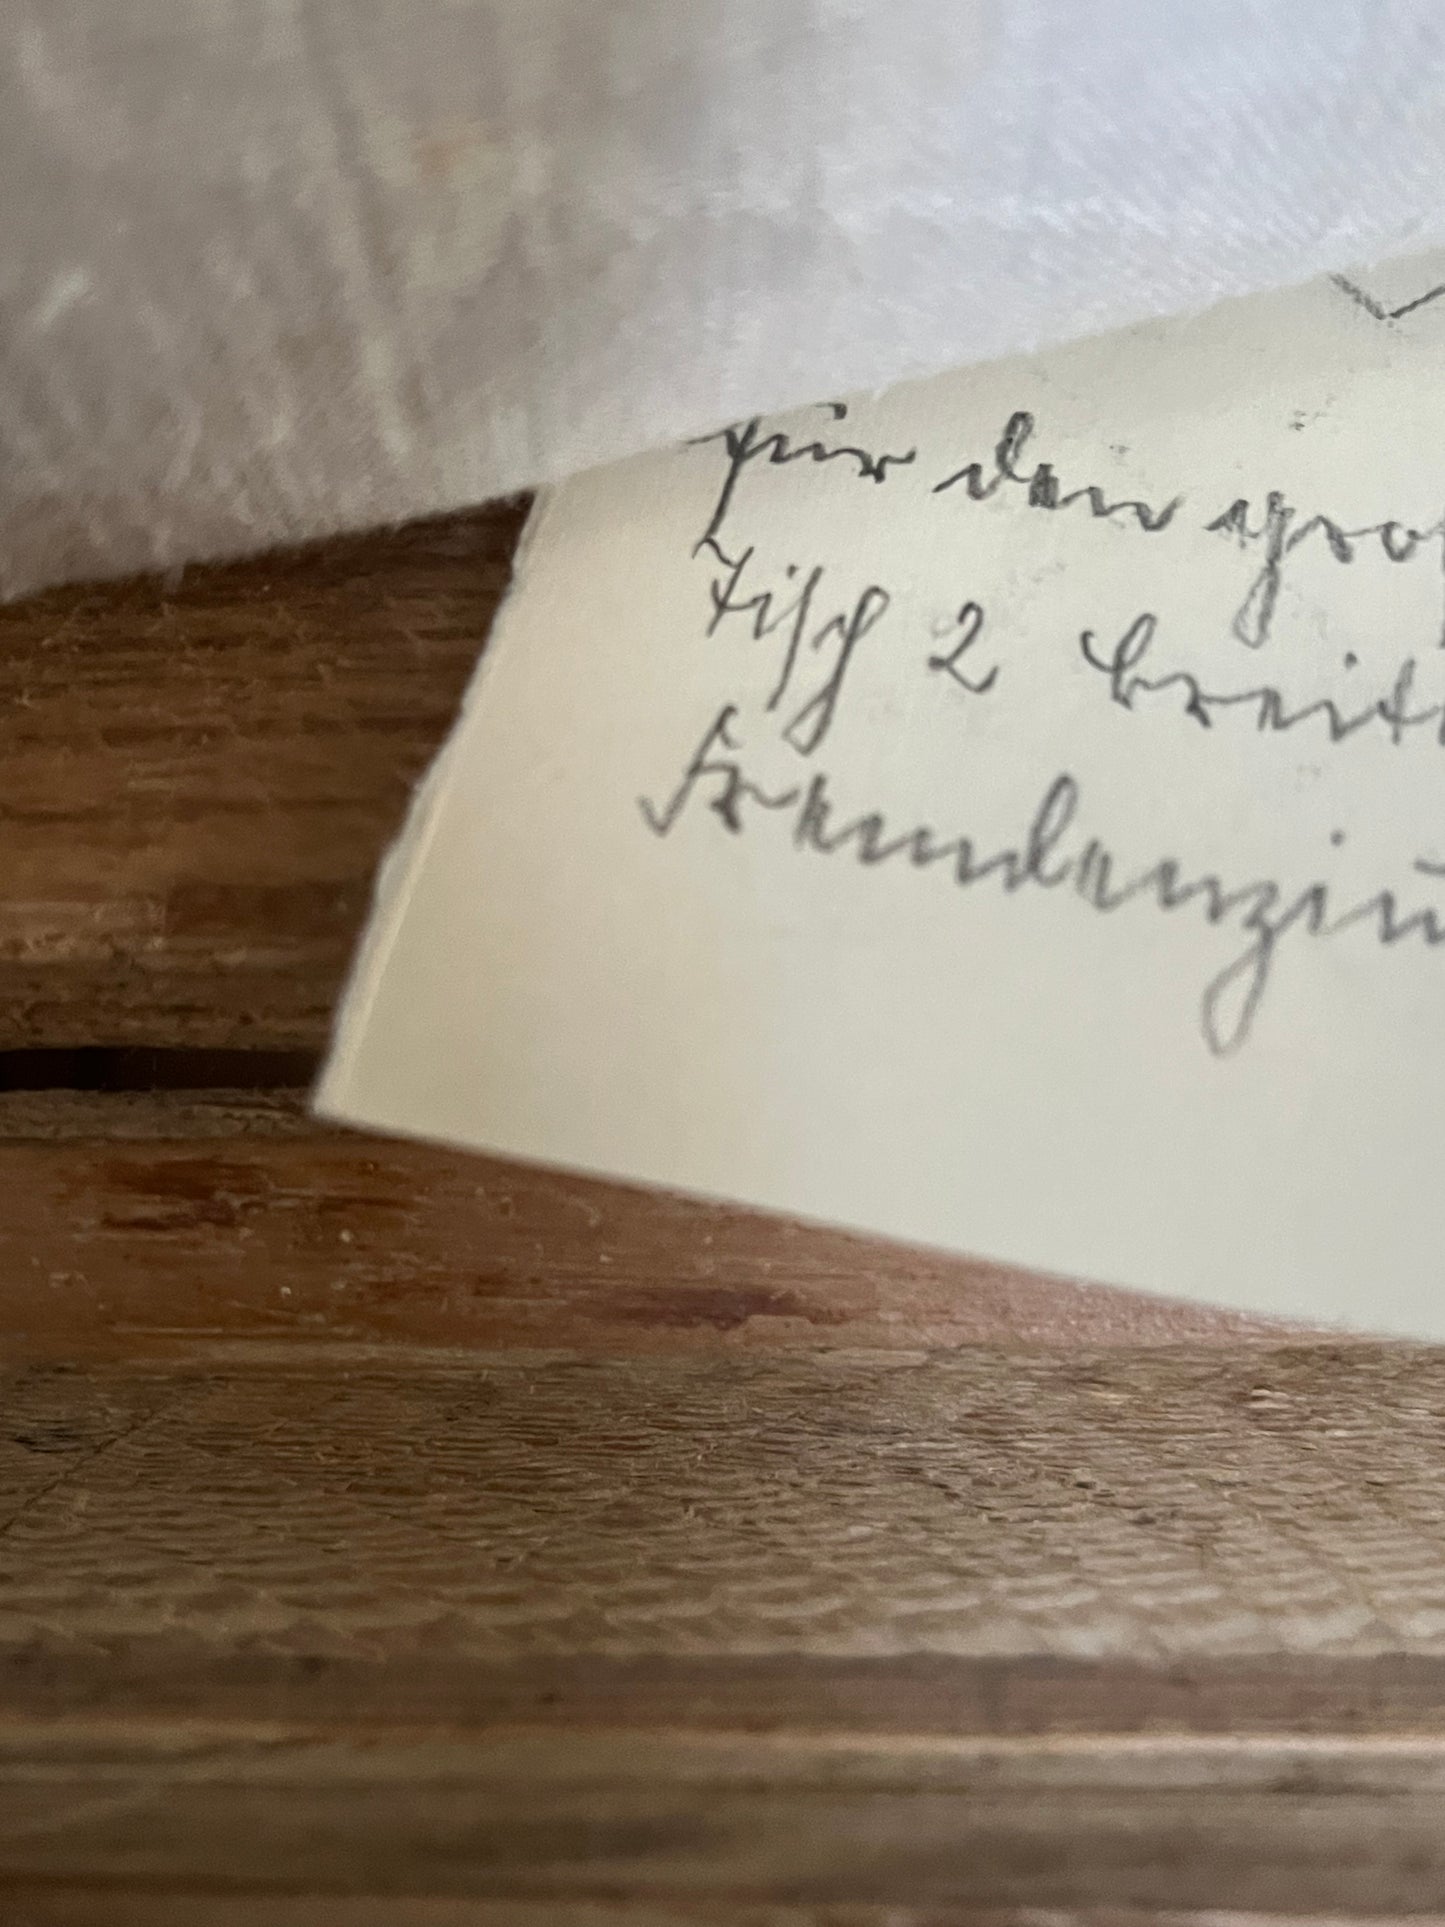 für den gro
Tisch 2 breit
Fremdenzim